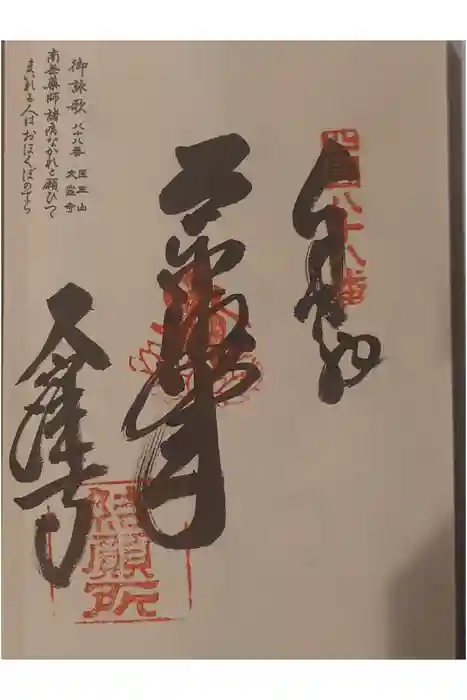 四国八十八番
奉納
大窪寺
結願所
御詠歌 八十八番 医王山 大窪寺
南無藥師諸病なかれと願ひつゝ
まいれる人はおほくぼのてら